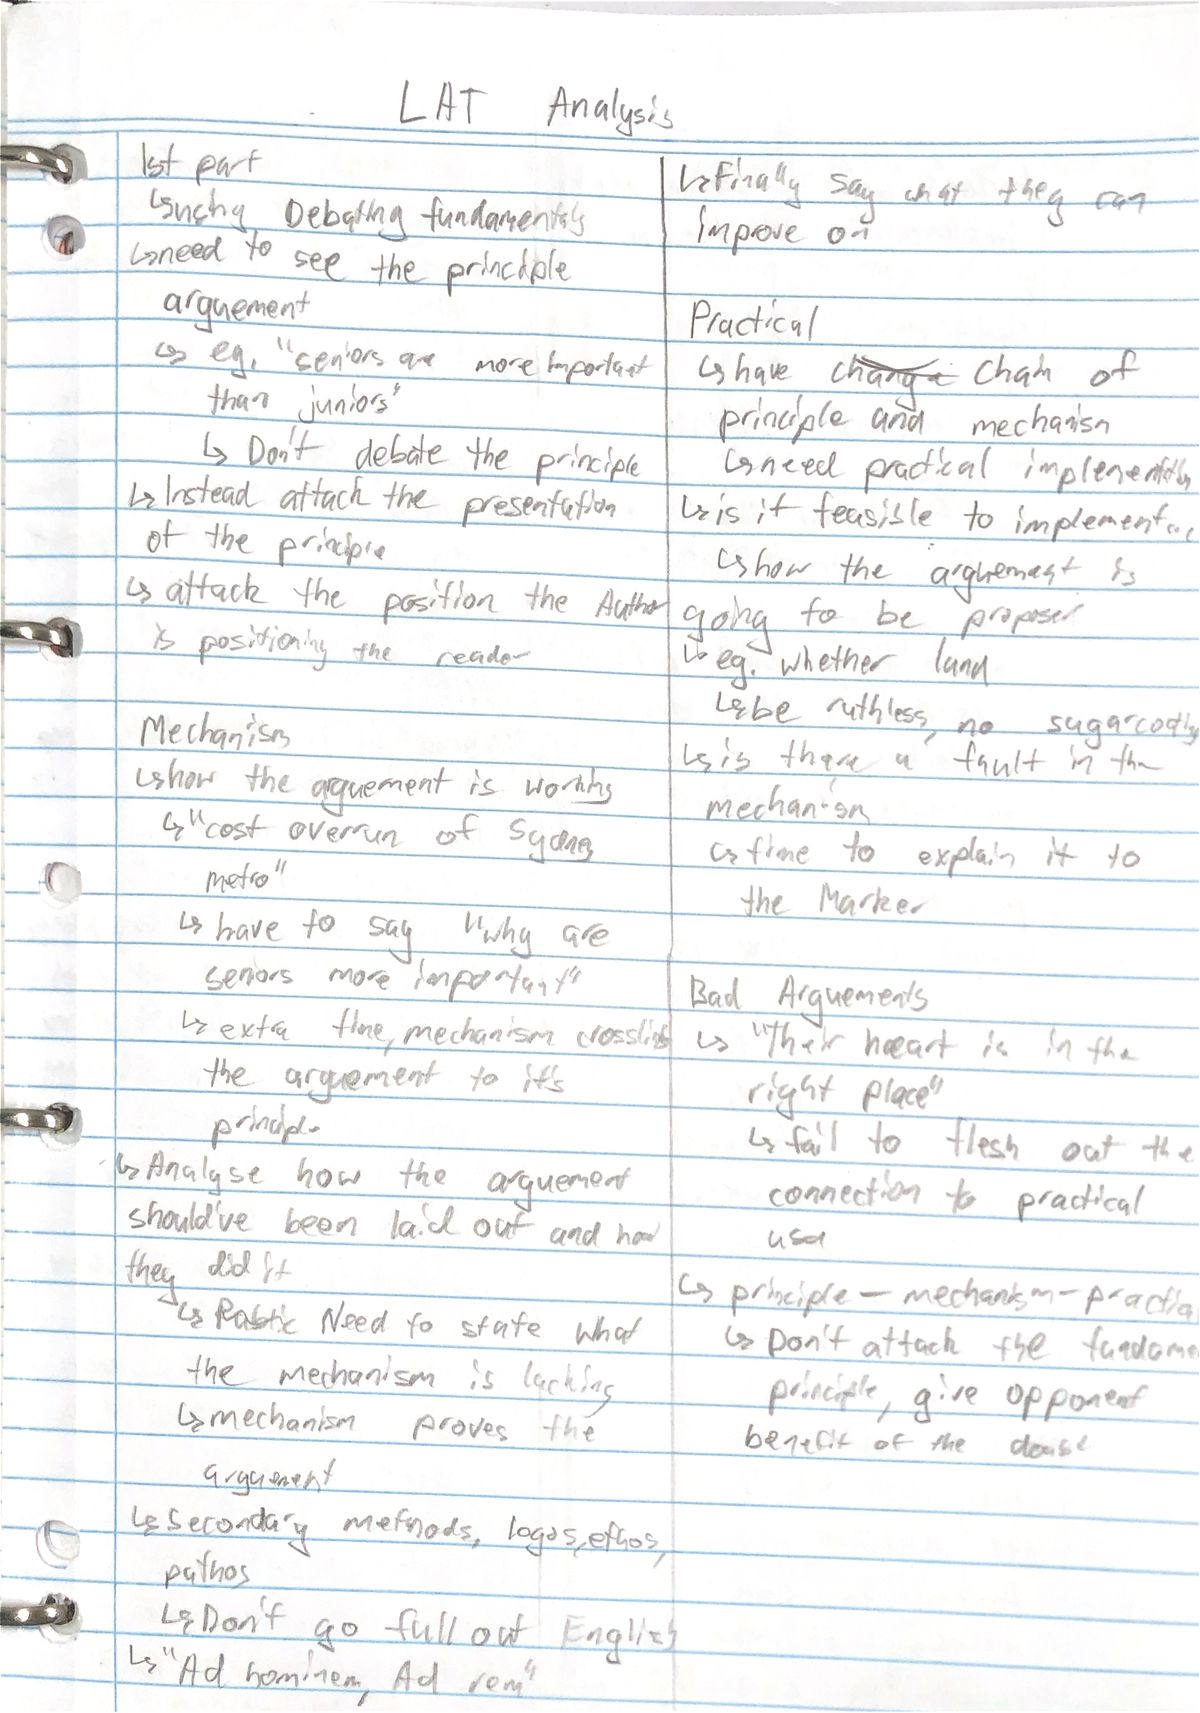 LAT Analysis
1st part
↳using Debating fundamentals
↳need to see the principle
arguement
↳ eg. "seniors are more important
than juniors"
↳ Don't debate the principle
↳ Instead attack the presentation
of the principle
↳ attack the position the Author
is positioning the reader
Mechanism
↳show the arguement is working
↳"cost overrun of Sydney
metro"
↳ have to say "why are
seniors more important"
↳ extra time, mechanism crosslinks
the arguement to it's
principle
↳Analyse how the arguement
should've been laid out and how
they did it
↳ Need to state what
the mechanism is lacking
↳mechanism proves the
arguement
↳Secondary methods, logos, ethos,
pathos
↳Don't go full out English
↳"Ad hominem, Ad rem"
↳Finally say what they can
improve on
Practical
↳have change chain of
principle and mechanism
↳need practical implementation
↳is it feasible to implement
↳how the arguement is
going to be proposer
↳eg. whether land
↳be ruthless, no sugarcoating
↳is there a fault in the
mechanism
↳time to explain it to
the Marker
Bad Arguements
↳ "Their heart is in the
right place"
↳fail to flesh out the
connection to practical
use
↳ principle – mechanism – practica
↳ Don't attack the fundame
principle, give opponent
benefit of the doubt